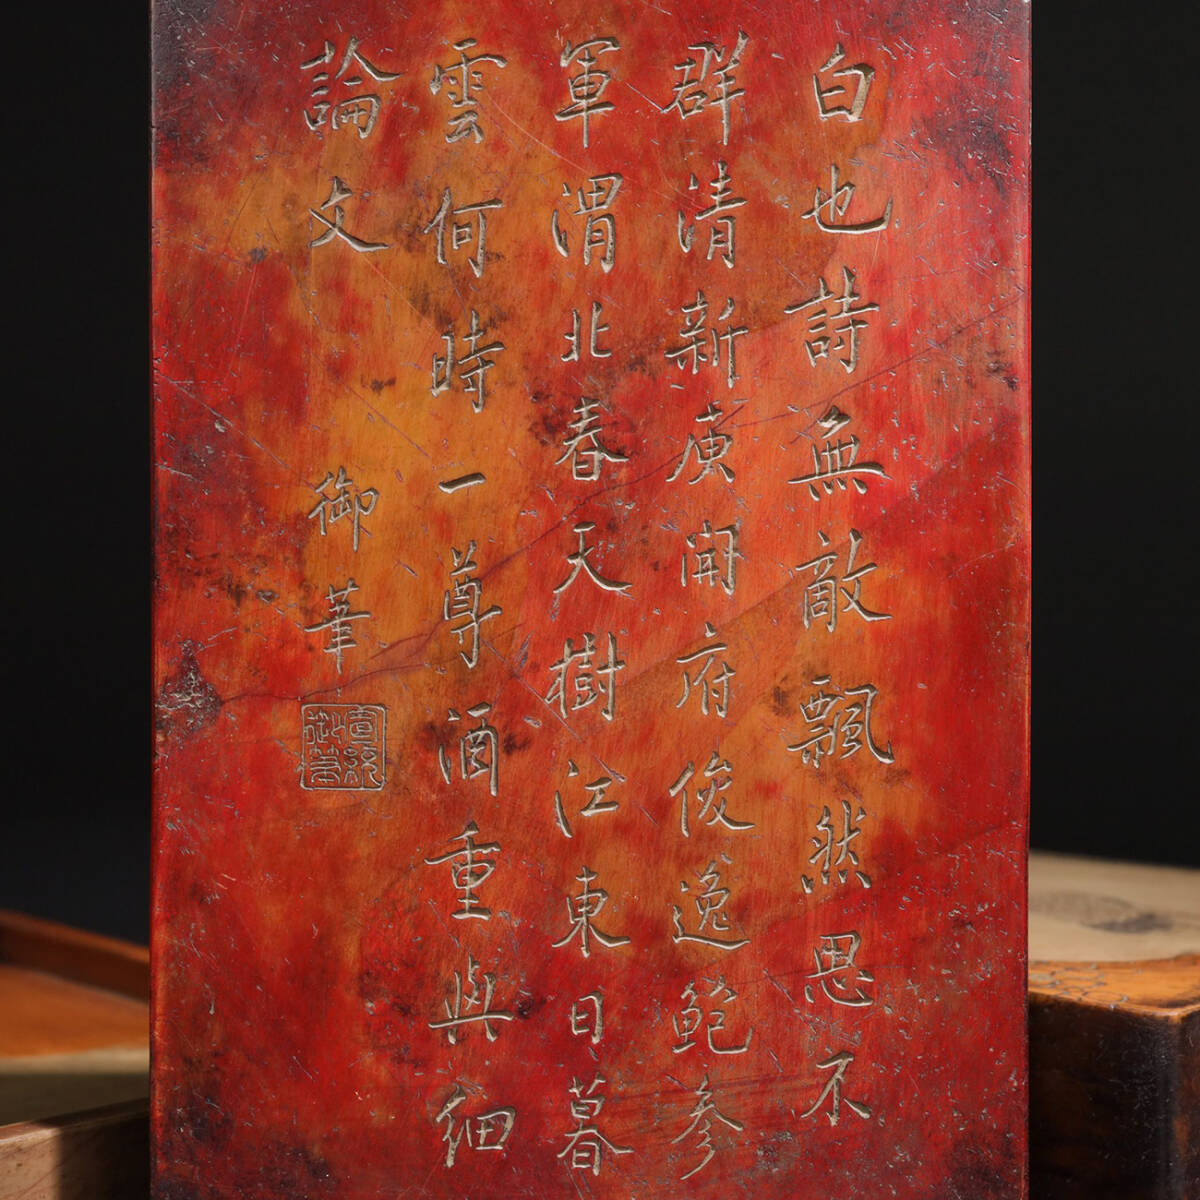 白也詩無敵飄然思不
群清新庾開府俊逸鮑參
軍渭北春天樹江東日暮
雲何時一尊酒重與細
論文 御筆
宣統御筆